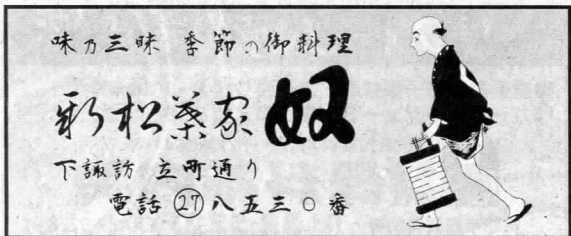 味乃三昧 季節の御料理
新松葉家 奴
下諏訪 立町通り
電話 ㉗八五三〇番